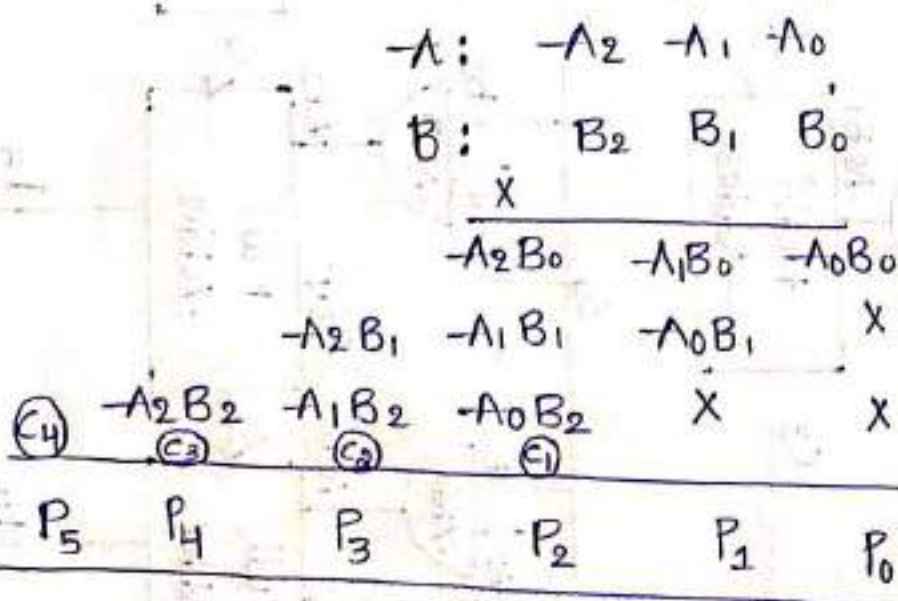 A: A2 A1 A0
B: B2 B1 B0
X
A2B0 A1B0 A0B0
A2B1 A1B1 A0B1 X
C4 A2B2 A1B2 A0B2 X X
C3 C2 C1
P5 P4 P3 P2 P1 P0